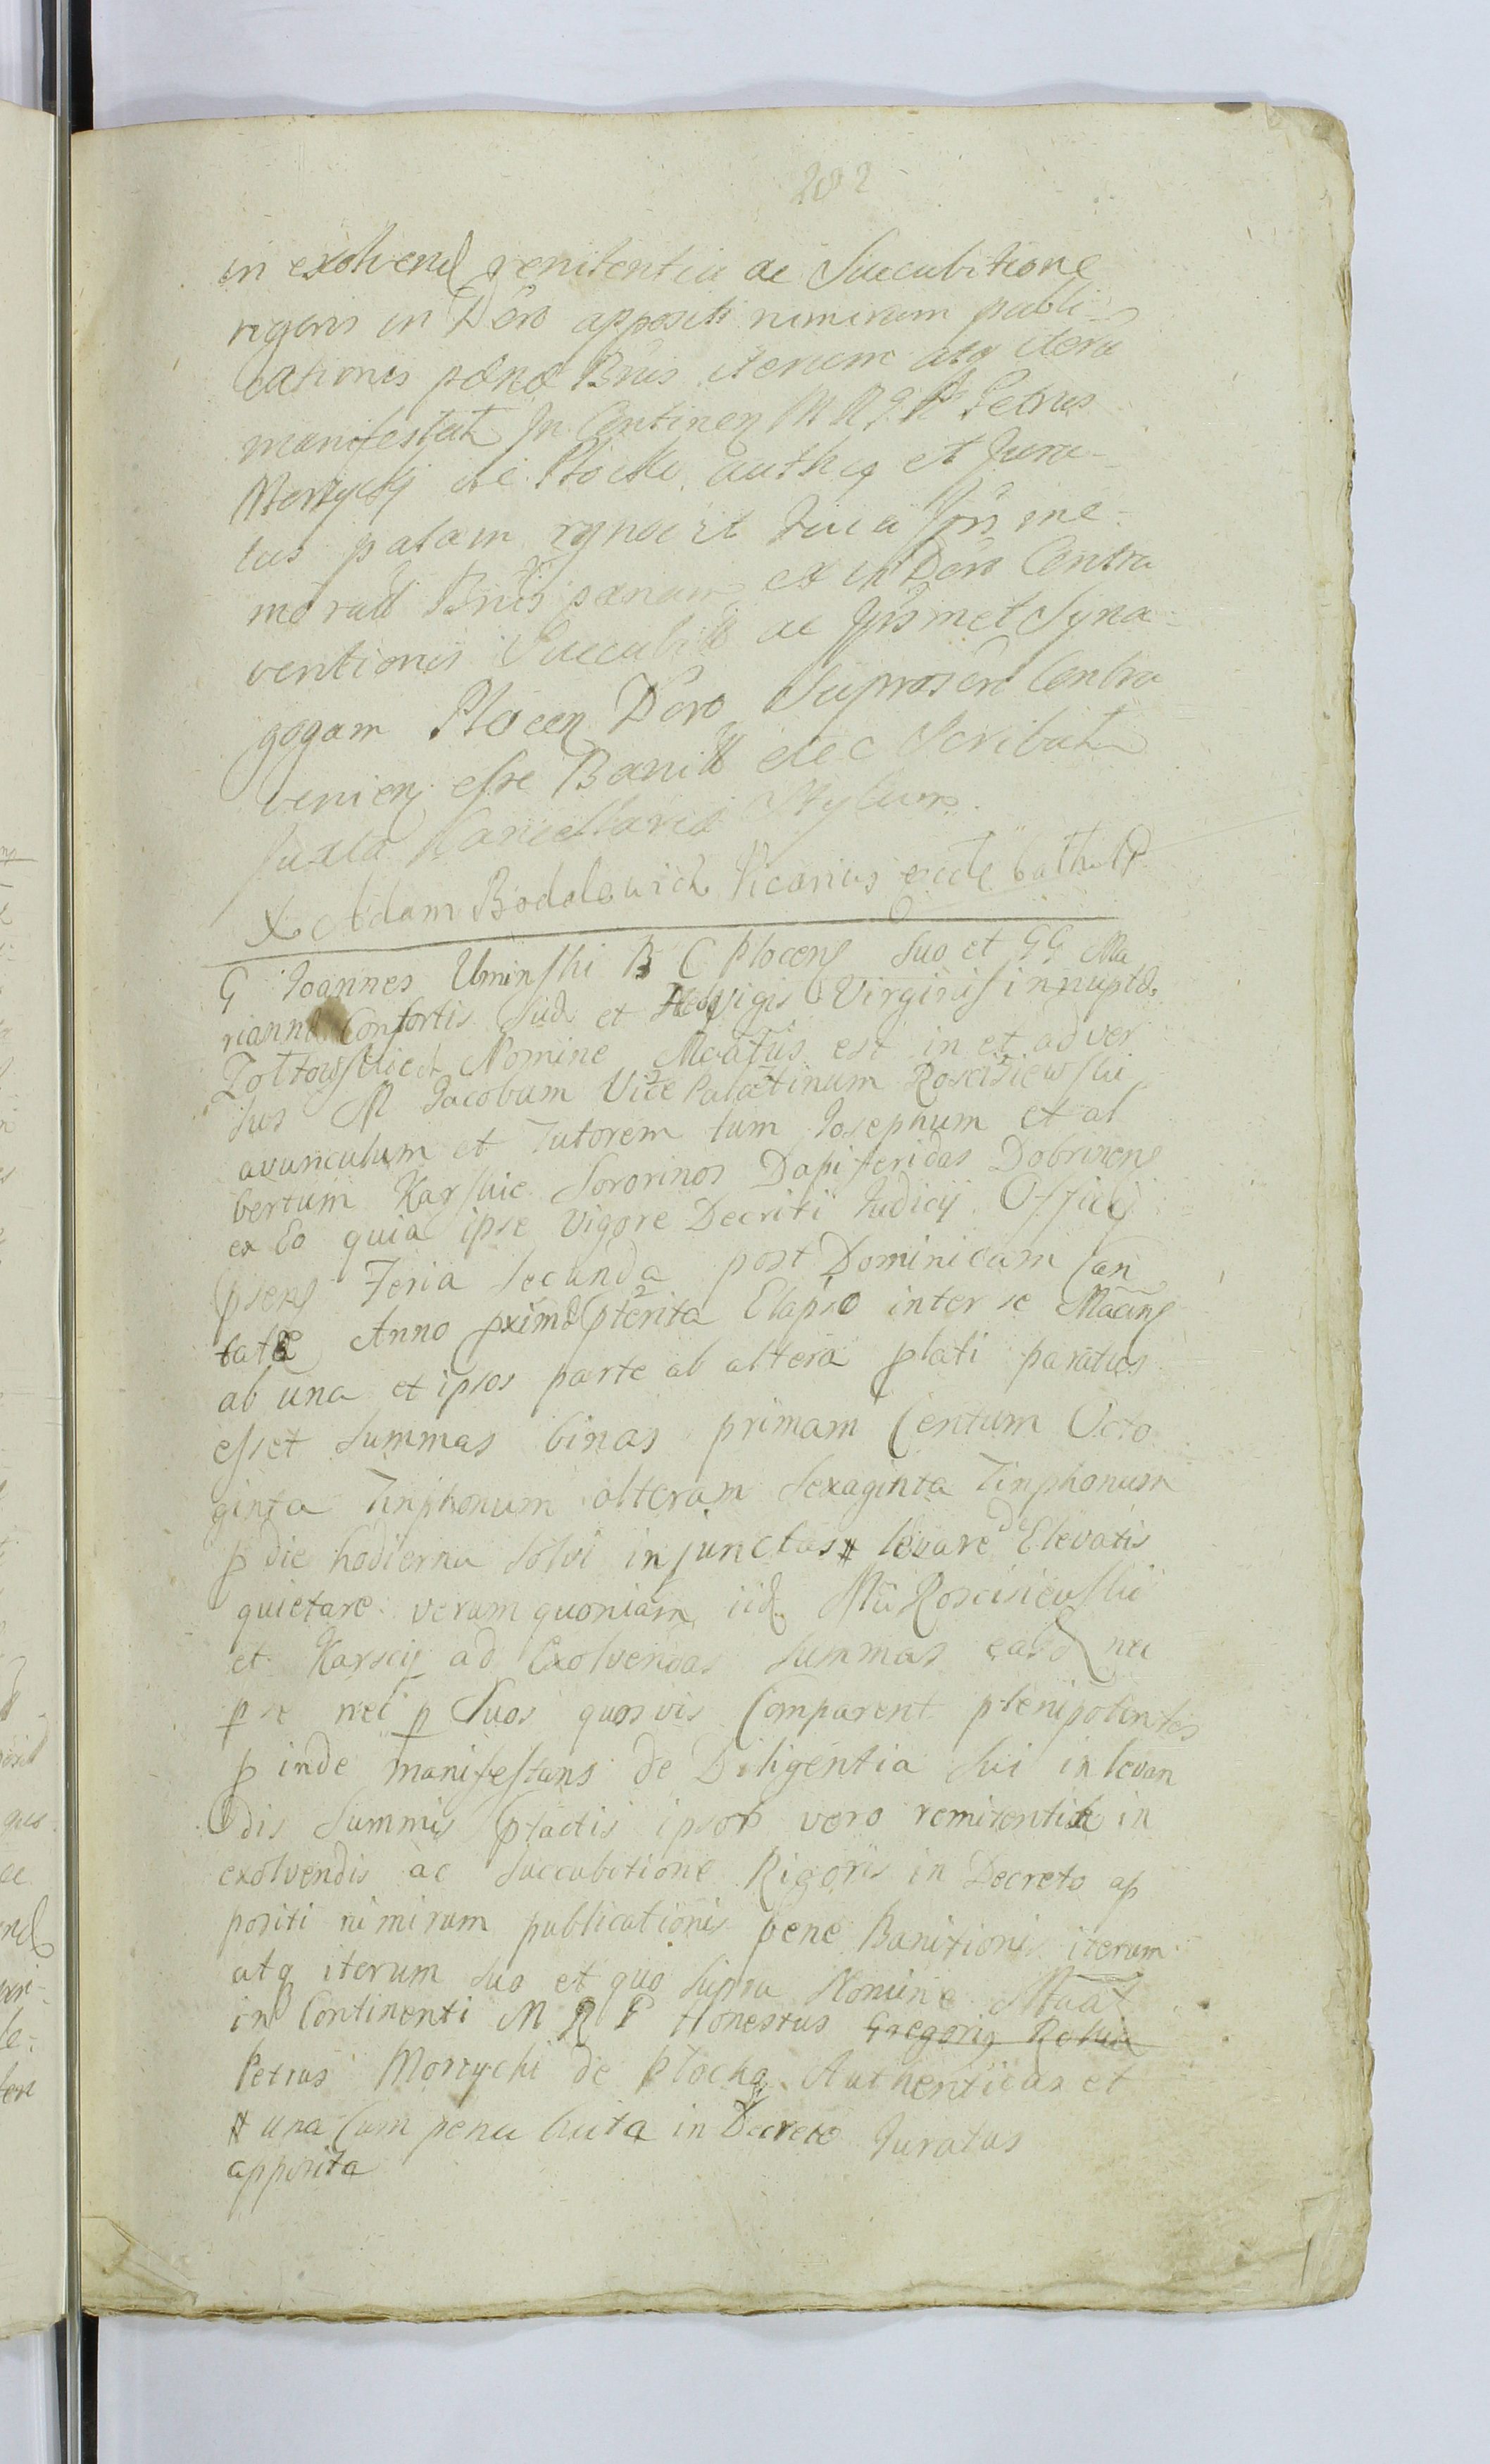 202
in exolvend renitentia ac Succubitione
rigoris in Dero appositi nimirum publi-
cationis pœnæ Bnis iterum atq iteru
manifestat In Continen M R G Petrus
de Plocko authq et Jura-
tus palam
Bnis pœnam et in Dero Contra
ventionis Succubitt ac Ipsmet Syna-
gogam Plocen Dero Suprascri Contra
venien esse Banitt etc Scribat
Juxta Cancellariæ Stylum.
X Adam Bodalowich Vicarius ecclæ Cathedr
G Joannes Uminski B C Plocens Suo et GG Ma
riannæ Consortis Suæ et Hedvigis Virginis innuptæ
Zoltowskich Nomine Mtatus est in et adver
sus M Jacobum Vice Palatinum Roscisiewski
avunculum et Tutorem tum Josephum et al
bertum Karskie Sororinos Dapiferidas Dobrinens
ex Eo quia ipse Vigore Decreti Judicij Officij
psens Feria Secunda post Dominicam Can
tatæ Anno pxime pterita Elapso inter se Macins
ab una et ipsos parte ab altera plati paratus
esset Summas binas primam Centum Octo
ginta Tinphonum alteram Sexaginta Tinphonum
p die hodierna solvi injunctas # levare d Elevatis
quietare verum quoniam iid Mii Roscisiewskii
et Karscij ad Exolvendas Summas easd nec
p se nec p Suos quosvis Comparent plenipotentes
p inde manifestans de Diligentia Sui in levan
dis Summis ptactis ipsor vero remitentia in
exolvendis ac Succubitione Rigoris in Decreto ap
positi nimirum publicationis pene Banitionis iterum
atq iterum suo et quo supra Nomine Mtat
in Continenti M R G Honestus Gregoriq
Petrus Morzycki de Plocka Authenticus et
# una Cum pena luita in Decreto Juratus
apposita